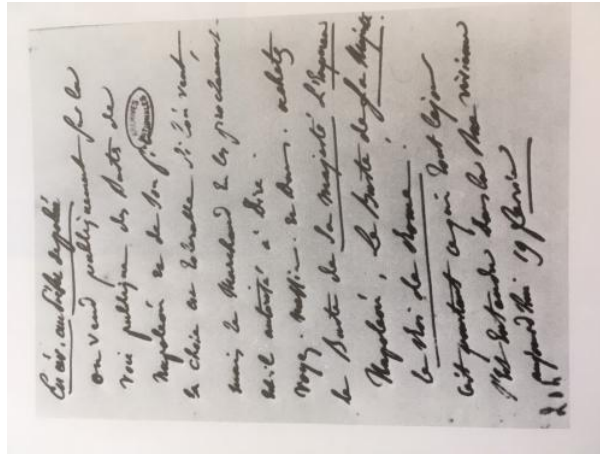 on vend publiquement sur la
voie publique des Buste de
Napoléon et de son f
la chose est tolérable si l'on veut
mais le Marchand en les proclamant
est-il autorisé à Dire
voyez Messieurs et Dames achetez
le Buste de Sa Majesté L'Empereur
Napoléon, Le Buste de Sa Majesté
le Roi de Rome.
C'est pourtant ce qui tout le jour
s'est entendu dans la
aujourd'hui 19 février
ARCHIVES NATIONALES